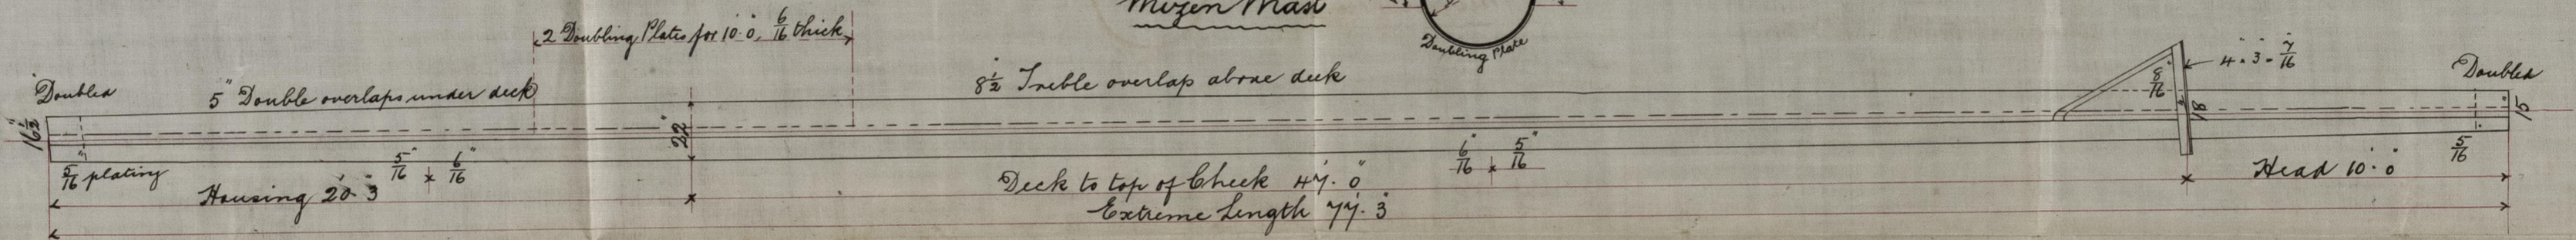 Mizen Mast
2 Doubling Plates for 10'.0", 6/16 thick
Doubling Plate
Doubled
5" Double overlaps under deck
8½" Treble overlap above deck
4" . 3" - 7/16
Doubled
16½"
22"
8/16
18
15
5/16 plating
5/16" x 6/16"
6/16 x 5/16"
5/16
Housing 20'.3"
Deck to top of Cheek 47'.0"
Head 10'.0"
Extreme Length 77'.3"